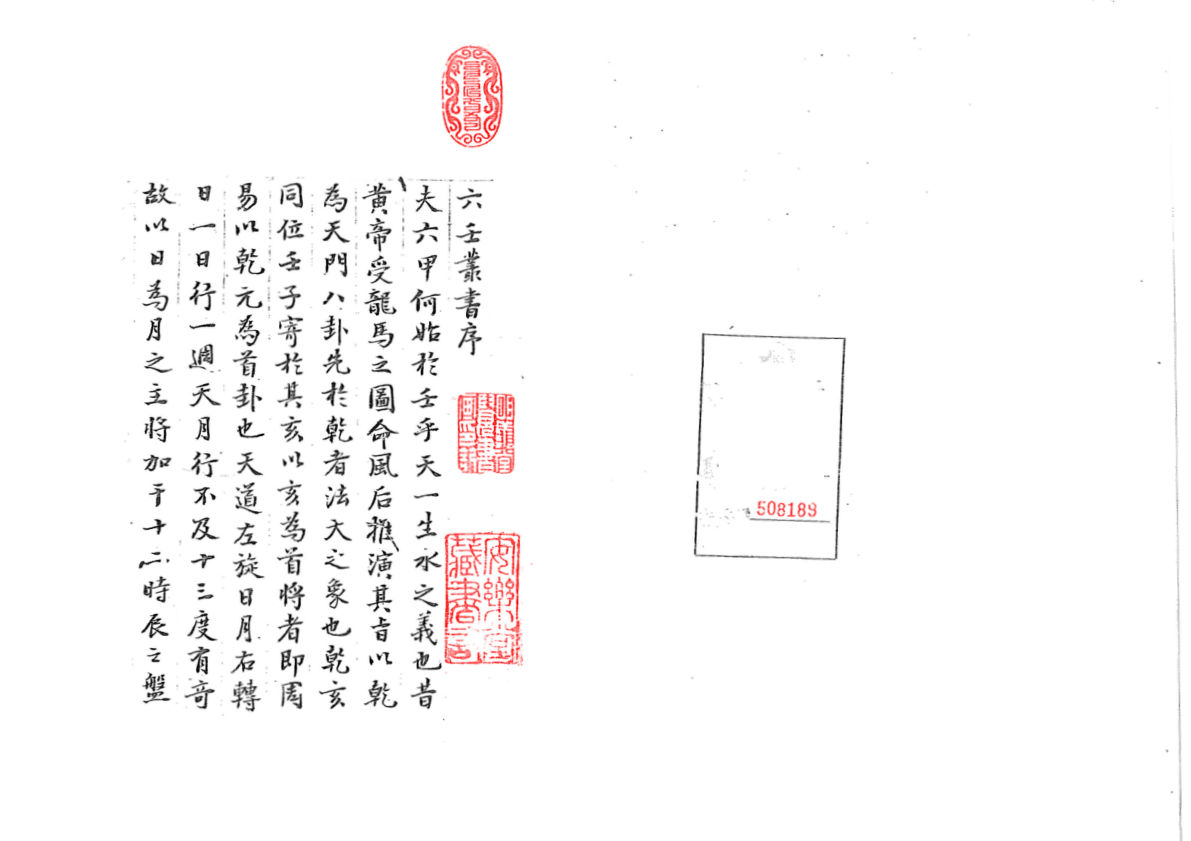 六壬叢書序
夫六甲何始於壬乎天一生水之義也昔
黃帝受龍馬之圖命風后推演其旨以乾
為天門八卦先於乾者法大之象也乾亥
同位壬子寄於其亥以亥為首將者即周
易以乾元為首卦也天道左旋日月右轉
日一日行一週天月行不及十三度有奇
故以日為月之主將加于十二時辰之盤
安樂堂
藏書記
508189